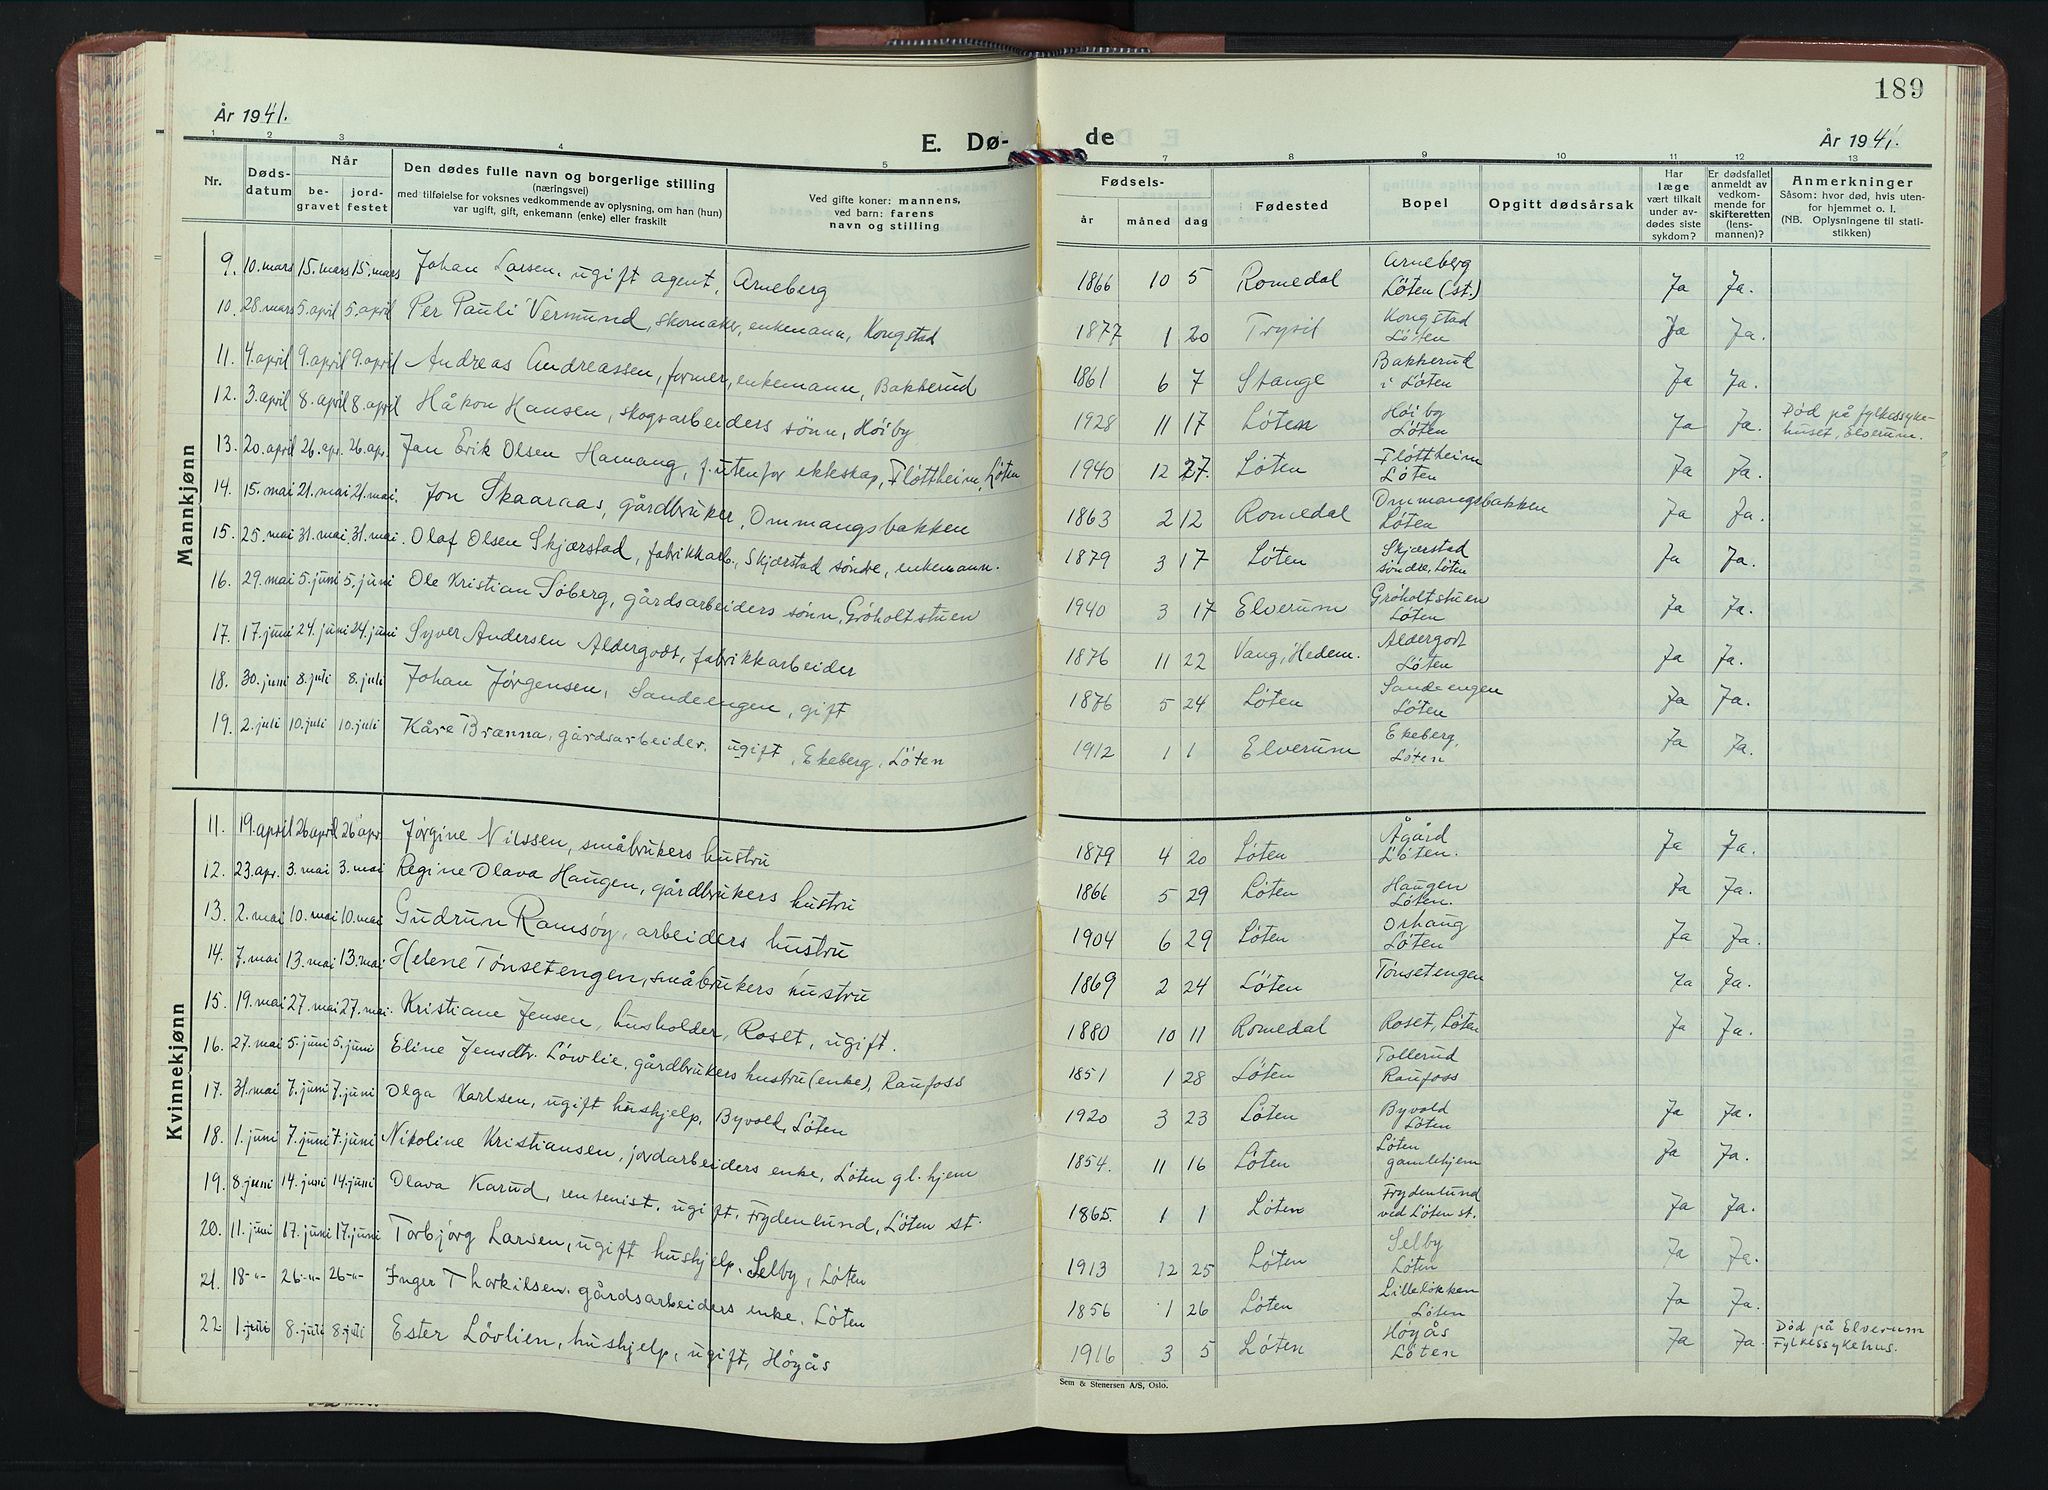 189
År 1941.
E. Dø-
de
År 1941.
1 2 3 4 5 7 8 9 10 11 12 13
Nr.
Døds-
datum
Når
be-
gravet
jord-
festet
Den dødes fulle navn og borgerlige stilling
(næringsvei)
med tilføielse for voksnes vedkommende av oplysning, om han (hun)
var ugift, gift, enkemann (enke) eller fraskilt
Ved gifte koner: mannens,
ved barn: farens
navn og stilling
Fødsels-
år måned dag
Fødested
Bopel
Opgitt dødsårsak
Har
læge
vært tilkalt
under av-
dødes siste
sykdom?
Er dødsfallet
anmeldt av
vedkom-
mende for
skifteretten
(lens-
mannen)?
Anmerkninger
Såsom: hvor død, hvis uten-
for hjemmet o. l.
(NB. Oplysningene til stati-
stikken)
Mannkjønn
9. 10. mars 15. mars 15. mars Johan Larsen, ugift agent, Arneberg 1866 10 5 Romedal Arneberg Løten (st.) Ja Ja.
10. 28. mars 5. april 5. april Per Pauli Vermund, skomaker, enkemann, Kongstad 1877 1 20 Trysil Kongstad Løten Ja Ja.
11. 4. april 9. april 9. april Andreas Andreassen, former, enkemann, Bakkerud 1861 6 7 Stange Bakkerud i Løten Ja Ja.
12. 3. april 8. april 8. april Håkon Hansen, skogsarbeiders sønn, Høiby 1928 11 17 Løten Høiby Løten Ja Ja. Død på fylkessyke-
huset, Elverum.
13. 20. april 26. ap. 26. ap. Jan Erik Olsen Hamang, f. utenfor ekteskap, Fløttheim, Løten 1940 12 27. Løten Fløttheim Løten Ja Ja.
14. 15. mai 21. mai 21. mai. Jon Skaarnas, gårdbruker, Ommangsbakken 1863 2 12 Romedal Ommangsbakken Løten Ja Ja.
15. 25. mai 31. mai 31. mai. Olaf Olsen Skjærstad, fabrikkarb., Skjærstad søndre, enkemann. 1879 3 17 Løten Skjærstad søndre, Løten Ja Ja.
16. 29. mai 5. juni 5. juni Ole Kristian Søberg, gårdsarbeiders sønn, Grøholtstuen 1940 3 17 Elverum Grøholtstuen Løten Ja Ja.
17. 17. juni 24. juni 24. juni Syver Andersen Aldergodt, fabrikkarbeider 1876 11 22 Vang, Hedem. Aldergodt Løten Ja Ja.
18. 30. juni 8. juli 8. juli Johan Jørgensen, Sandeengen, gift 1876 5 24 Løten Sandeengen Løten Ja Ja.
19. 2. juli 10. juli 10. juli Kåre Brænna, gårdsarbeider, ugift, Ekeberg, Løten 1912 1 1 Elverum Ekeberg, Løten Ja Ja.
Kvinnekjønn
11. 19. april 26 april 26 apr. Jørgine Nilssen, småbrukers hustru 1879 4 20 Løten Ågård Løten. Ja Ja.
12. 23. apr. 3. mai 3. mai Regine Olava Haugen, gårdbrukers hustru 1866 5 29 Løten Haugen Løten. Ja Ja.
13. 2. mai 10. mai 10. mai Gudrun Ramsøy, arbeiders hustru 1904 6 29 Løten Orhaug Løten Ja Ja.
14. 7. mai 13. mai 13. mai Helene Tønsetengen, småbrukers hustru 1869 2 24 Løten Tønsetengen Ja Ja.
15. 19. mai 27. mai 27. mai. Kristiane Jensen, husholder, Roset, ugift. 1880 10 11 Romedal Roset, Løten Ja Ja.
16. 27. mai 5. juni 5. juni Eline Jensdtr. Løvlie, gårdbrukers hustru (enke), Raufoss 1851 1 28 Løten Tollerud Raufoss
17. 31. mai 7. juni 7. juni Olga Karlsen, ugift hushjelp, Byvold, Løten 1920 3 23 Løten Byvold Løten Ja Ja.
18. 1. juni 7. juni 7. juni Nikoline Kristiansen, jordarbeiders enke, Løten gl. hjem 1854. 11 16 Løten Løten gamlehjem Ja Ja.
19. 8. juni 14. juni 14. juni Olava Karud, rentenist, ugift, Frydenlund, Løten st. 1865. 1 1 Løten Frydenlund ved Løten st. Ja Ja.
20. 11. juni 17. juni 17. juni Torbjørg Larsen, ugift hushjelp, Selby, Løten 1913 12 25 Løten Selby Løten Ja Ja.
21. 18 -"- 26 -"- 26 -"- Inger Thorkilsen, gårdsarbeiders enke, Løten 1856 1 26 Løten Lilleløkken Løten Ja Ja.
22. 1. juli 8. juli 8. juli Ester Løvlien, hushjelp, ugift, Høyås 1916 3 5 Løten Høyås Løten Ja Ja. Død på Elverum
Fylkessykehus.
Sem & Stenersen A/S, Oslo.